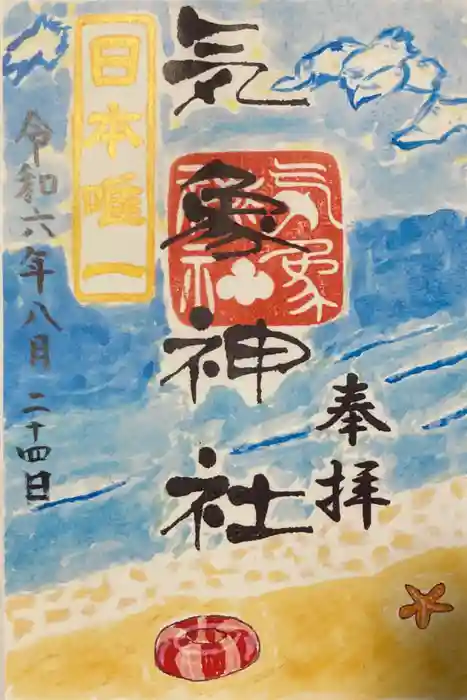 奉拝
気象神社
日本唯一
令和六年八月二十四日